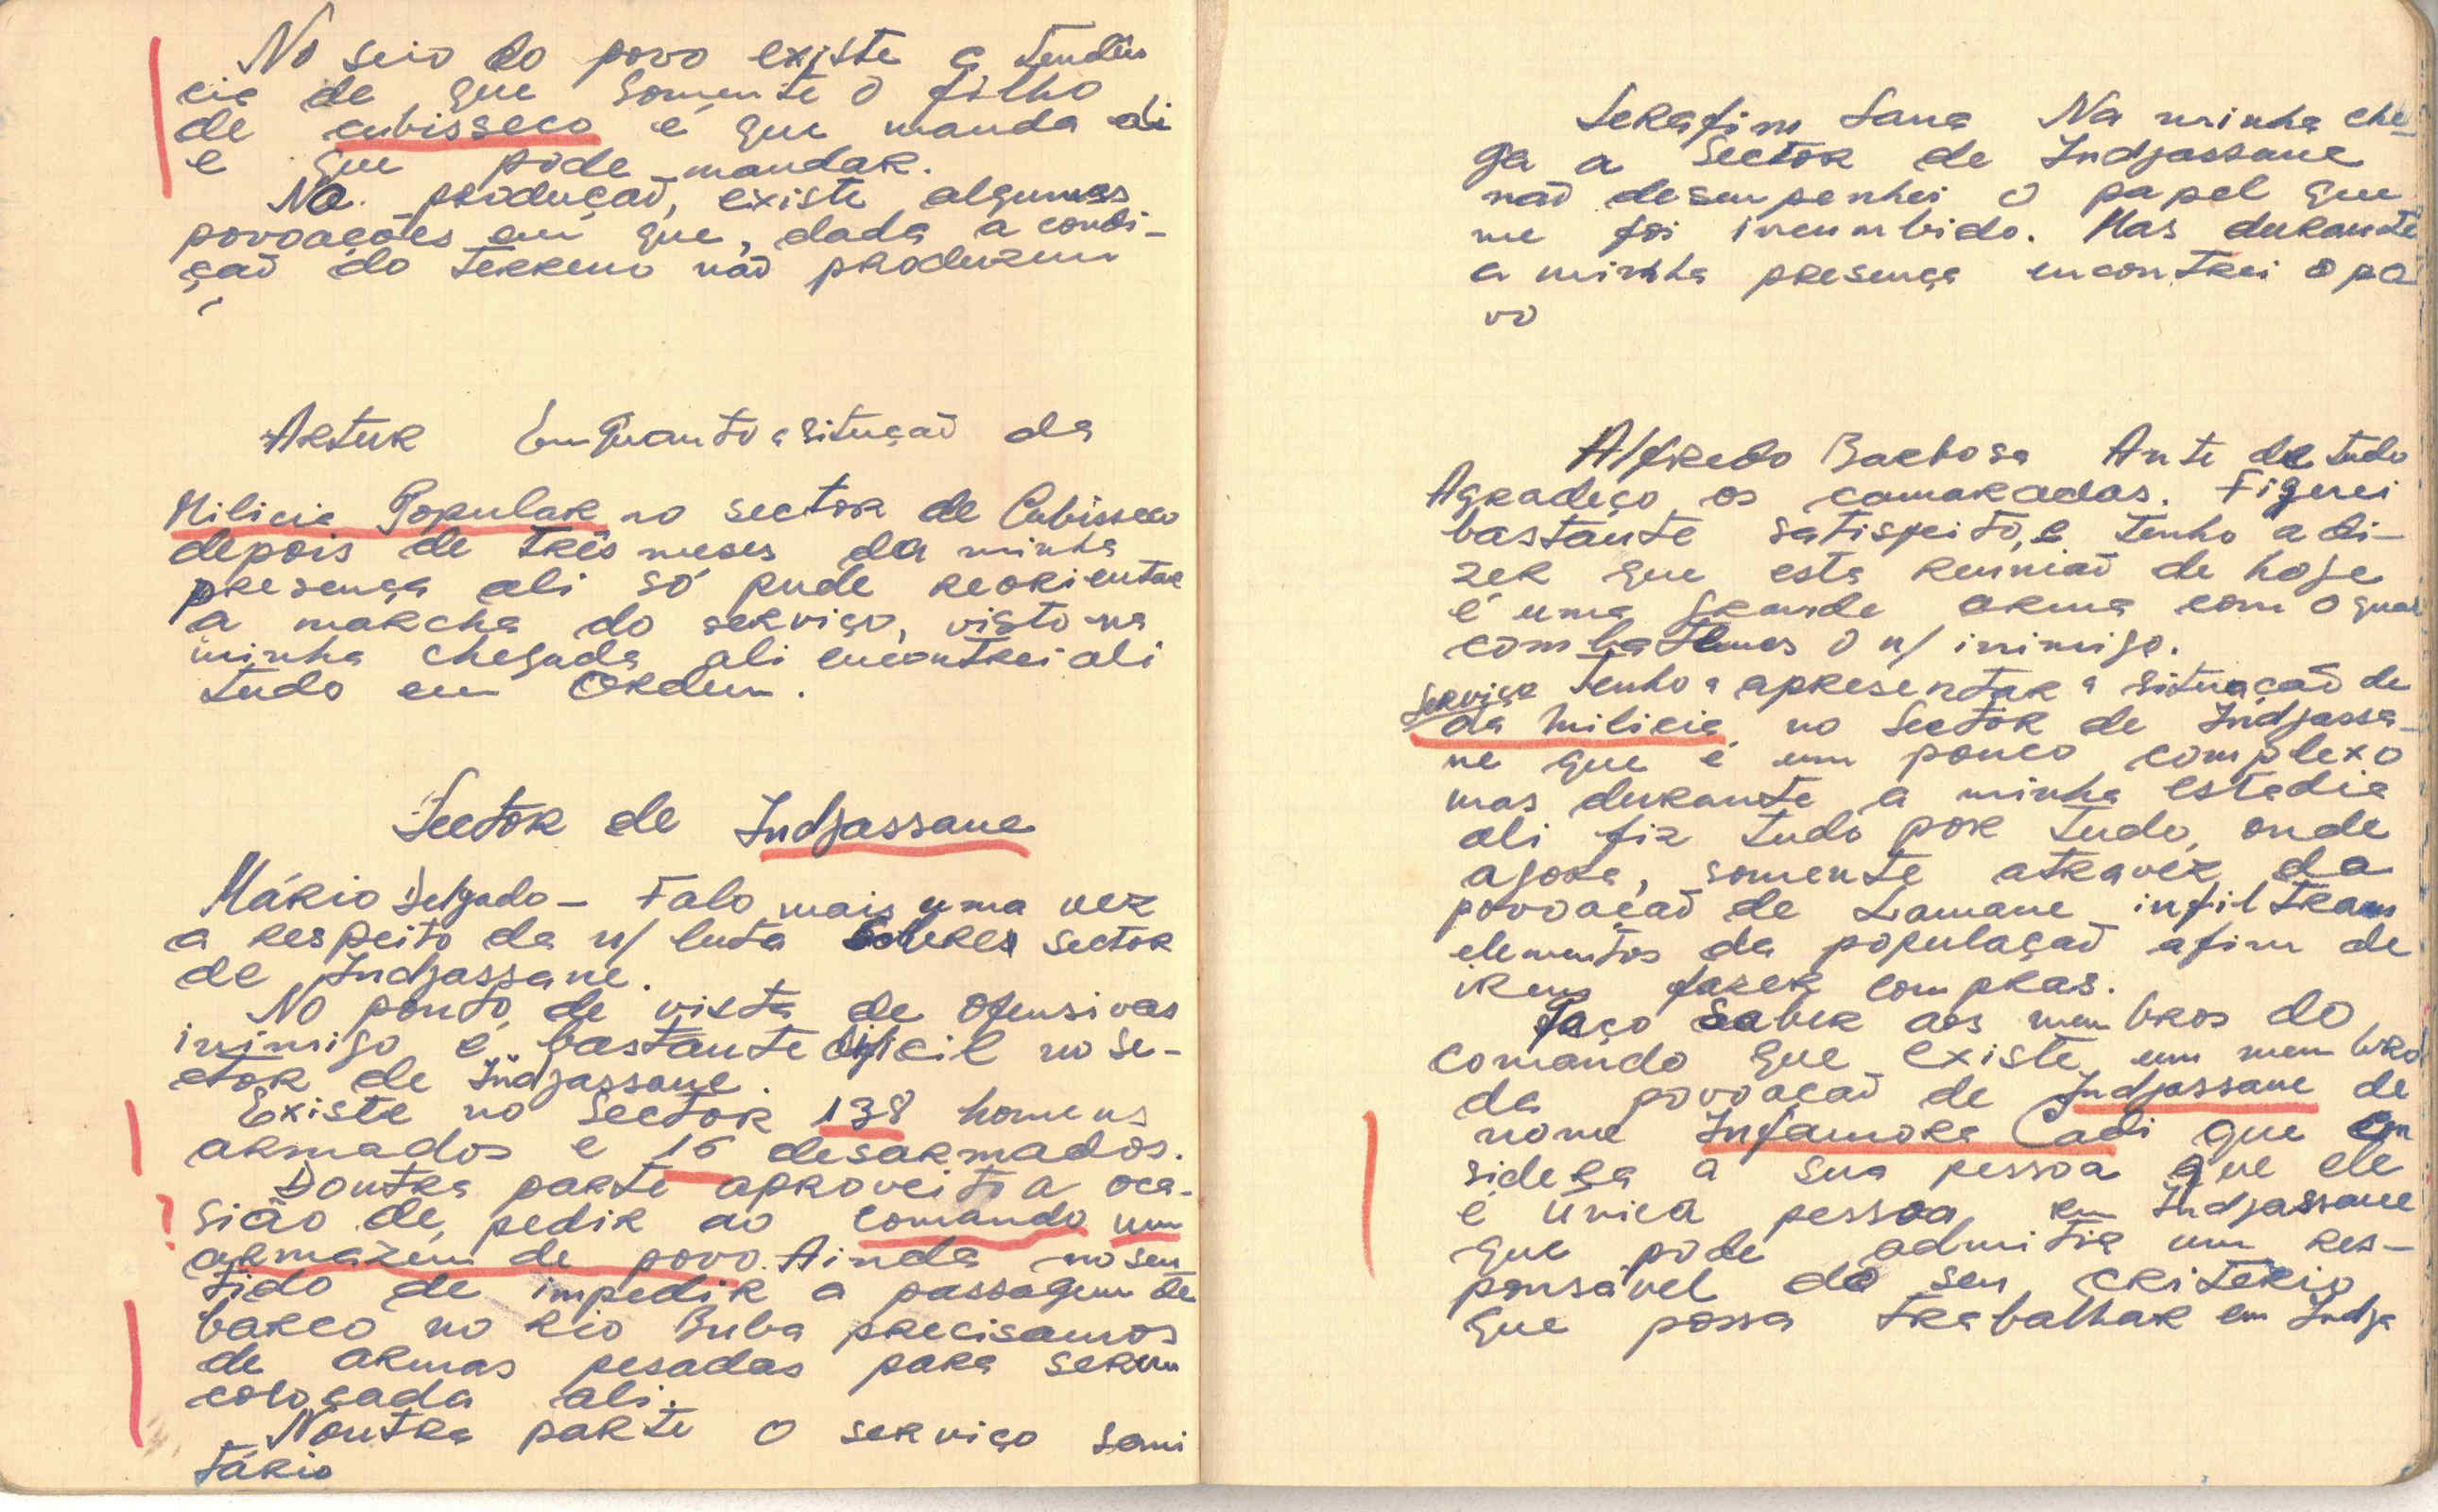 No seio do povo existe a tendên
cia de que somente o filho
de cubisseco é que manda ali
e que pode mandar.
Na produção, existe algumas
povoações em que, dada a condi-
ção do terreno não produzem
Artur Enquanto a situação da
Milicia Popular no sector de Cubisseco
depois de três meses da minha
presença ali só pude reorientar
a marcha do serviço, visto na
minha chegada ali encontrei ali
tudo em ordem.
Sector de Indjassane
Mário Delgado - Falo mais uma vez
a respeito da n/ luta sector
de Indjassane.
No ponto de vista de ofensivas
inimigo é bastante dificil no se-
ctor de Indjassane.
Existe no sector 138 homens
armados e 16 desarmados.
Doutra parte aproveito a oca-
sião de pedir ao comando um
armazém de povo. Ainda no sen
tido de impedir a passagem de
barco no rio Buba precisamos
de armas pesadas para serem
colocada ali.
Noutra parte o serviço sani
tário
Serafim Sana Na minha che-
ga a Sector de Indjassane
não desempenhei o papel que
me foi incumbido. Mas durante
a minha presença encontrei o po
vo
Alfredo Barbosa Ante de tudo
Agradeço os camaradas. Fiquei
bastante satisfeito, e tenho a di-
zer que esta reunião de hoje
é uma grande arma com o qual
combatemos o n/ inimigo.
Tenho a apresentar a situação de
serviço da milicia no Sector de Indjassa-
ne que é um pouco complexo
mas durante a minha estadia
ali fiz tudo por tudo, onde
agora, somente atravéz da
povoação de Lamane infiltram
elementos da população afim de
irem fazer compras.
Faço saber aos membros do
comando que existe um membro
da povoação de Indjassane de
nome Injamora Cadi que con
sidera a sua pessoa que ele
é única pessoa em Indjassane
que pode admitir um res-
ponsável do seu criterio
que possa trabalhar em Indja